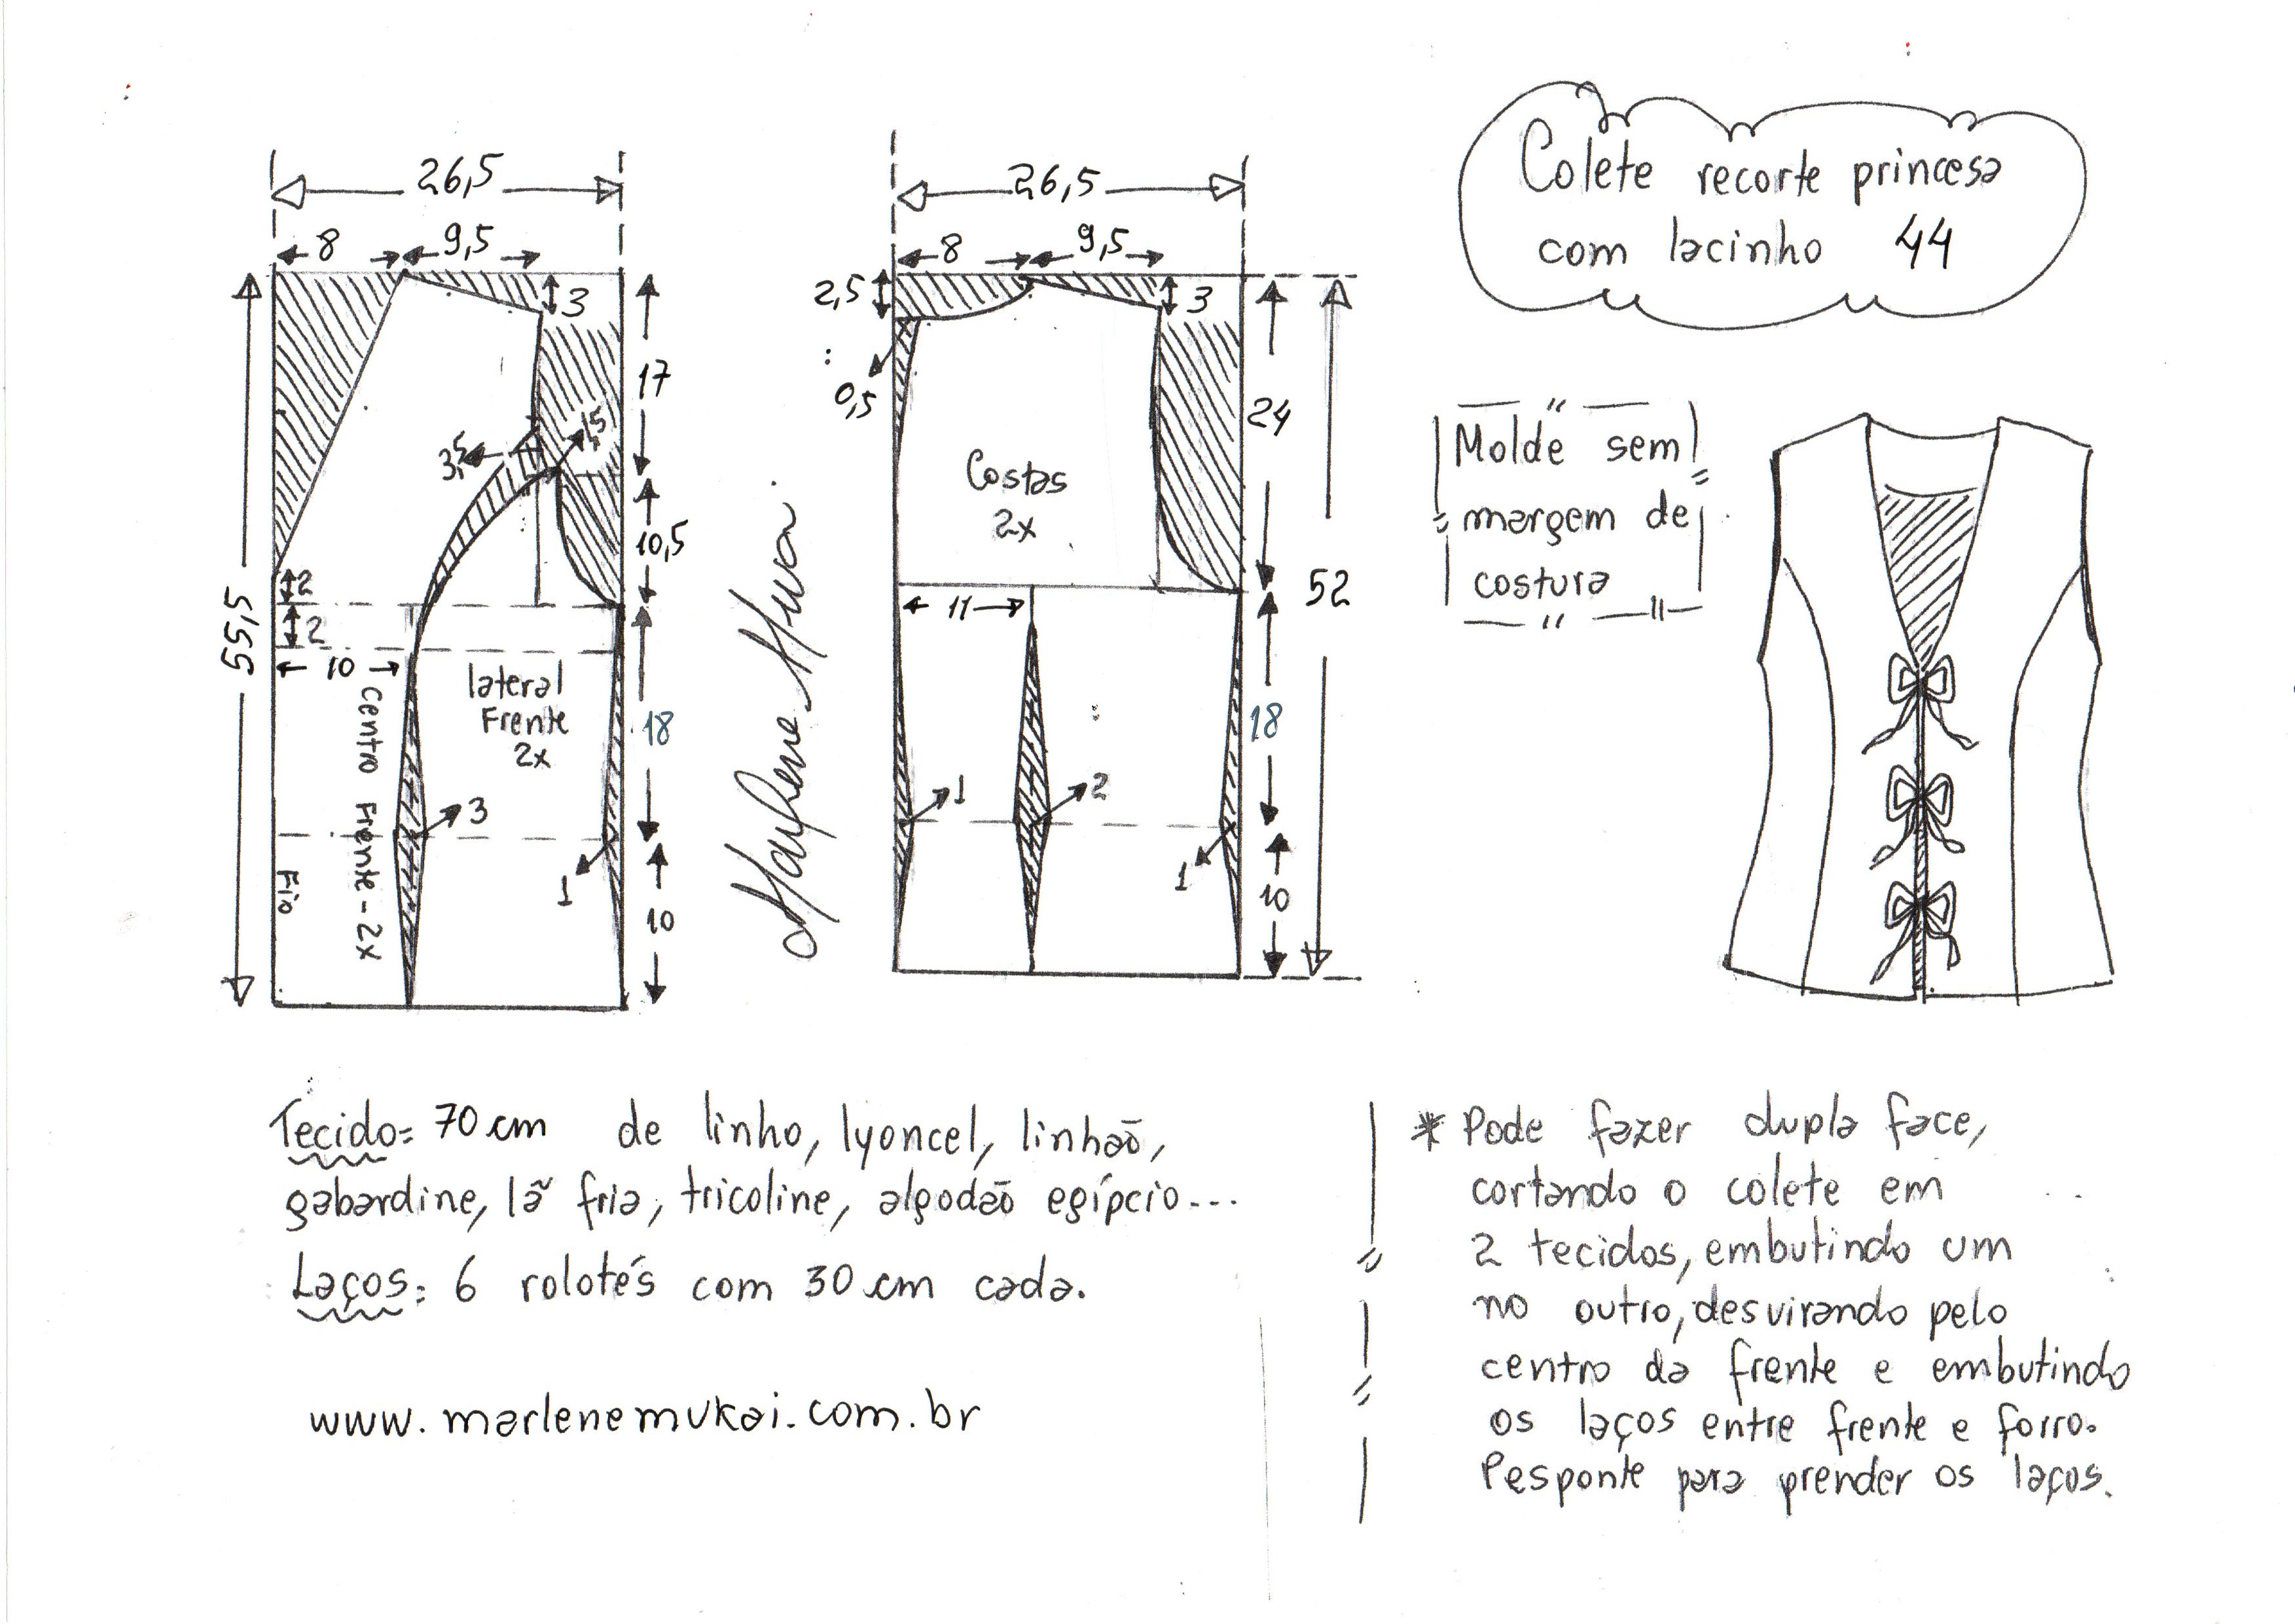 Colete recorte princesa
com lacinho 44
Molde sem
margem de
costura
26,5
8
9,5
3
17
3,5
1,5
10,5
2
2
10
55,5
lateral
Frente
2x
Centro Frente - 2x
Fio
18
3
1
10
Marlene Mukai
26,5
8
9,5
2,5
3
0,5
24
Costas
2x
11
52
18
1
2
1
10
Tecido: 70 cm de linho, lyoncel, linhão,
gabardine, lã fria, tricoline, algodão egípcio...
Laços: 6 rolotés com 30 cm cada.
www.marlenemukai.com.br
* Pode fazer dupla face,
cortando o colete em
2 tecidos, embutindo um
no outro, desvirando pelo
centro da frente e embutindo
os laços entre frente e forro.
Pesponte para prender os laços.